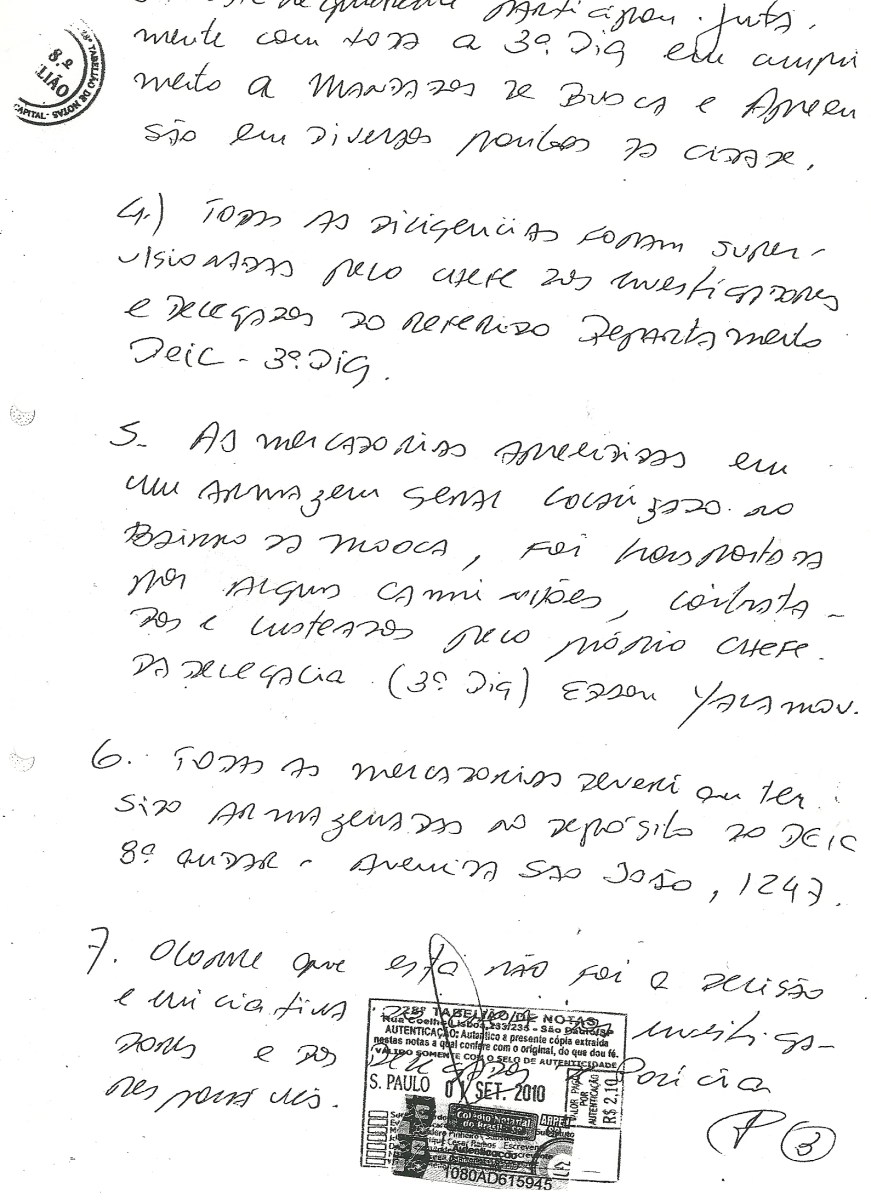 participou junta-
mente com toda a 3ª Dig em cumpri
mento a mandados de Busca e Apreen
são em diversos pontos da cidade.
8.º
LIÃO
28º TABELIÃO DE NOTAS
CAPITAL
4.) Todas as diligencias foram super-
visionadas pelo chefe dos investigadores
e delegados do referido Departamento
Deic - 3ª Dig.
5- As mercadorias apreendidas em
um armazem geral localizado no
Bairro da Mooca, foi transportada
por alguns caminhões, contrata-
dos e custeados pelo próprio chefe.
da delegacia (3ª Dig)
6. Todas as mercadorias deveriam ter
sido armazenadas no depósito do DEIC
8º andar - Avenida São João, 1247.
7. Ocorre que esta não foi a decisão
e iniciativa investiga-
dores e dos Delegados Policia
responsáveis.
28º TABELIÃO DE NOTAS
Rua Coelho Lisboa, 233/235 - São Paulo-SP
AUTENTICAÇÃO: Autentico a presente cópia extraída
nestas notas a qual confere com o original, do que dou fé.
VÁLIDO SOMENTE COM O SELO DE AUTENTICIDADE
S. PAULO 01 SET. 2010
VALOR PAGO
POR
AUTENTICAÇÃO
R$ 2,10
Colégio Notarial
do Brasil
ARPEN
Autenticação
1080AD615945
3